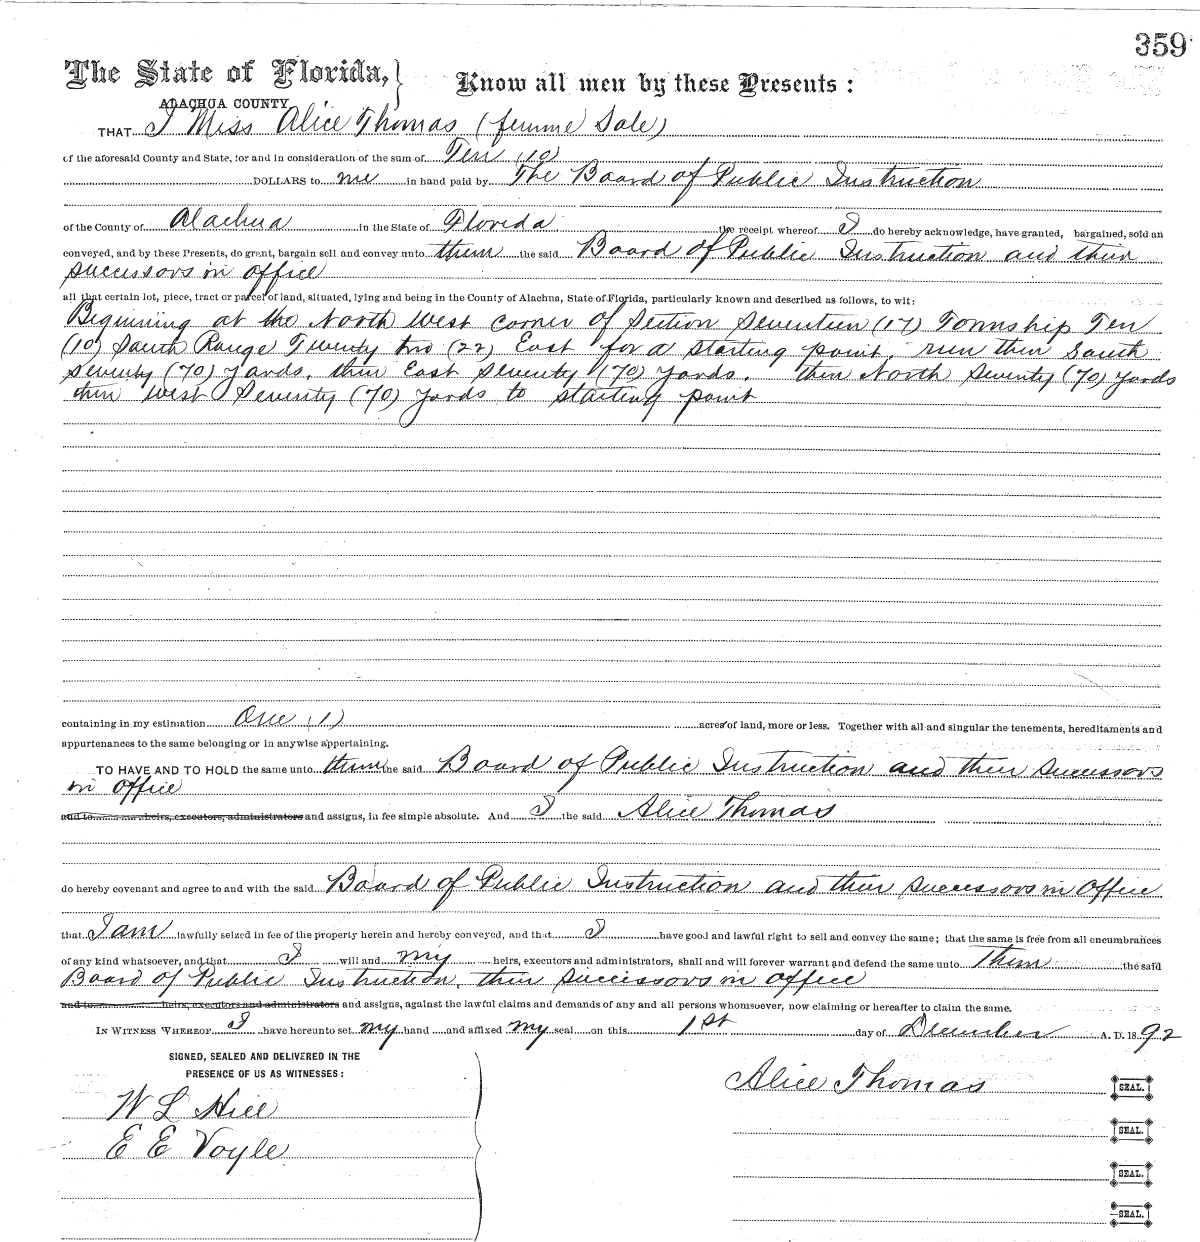 359
The State of Florida,
ALACHUA COUNTY
Know all men by these Presents :
THAT I Miss Alice Thomas (femme Sole)
of the aforesaid County and State, for and in consideration of the sum of Ten (10)
DOLLARS to me in hand paid by The Board of Public Instruction
of the County of Alachua in the State of Florida the receipt whereof I do hereby acknowledge, have granted, bargained, sold an
conveyed, and by these Presents, do grant, bargain sell and convey unto them the said Board of Public Instruction and their
successors in office
all that certain lot, piece, tract or parcel of land, situated, lying and being in the County of Alachua, State of Florida, particularly known and described as follows, to wit:
Beginning at the North West corner of Section Seventeen (17) Township Ten
(10) South Range Twenty two (22) East for a starting point, run then South
seventy (70) yards, then East seventy (70) yards, then North seventy (70) yards
then West Seventy (70) yards to starting point
containing in my estimation One (1) acres of land, more or less. Together with all and singular the tenements, hereditaments and
appurtenances to the same belonging or in anywise appertaining.
TO HAVE AND TO HOLD the same unto them the said Board of Public Instruction and their Successors
in office
and to heirs, executors, administrators and assigns, in fee simple absolute. And I the said Alice Thomas
do hereby covenant and agree to and with the said Board of Public Instruction and their successors in office
that I am lawfully seized in fee of the property herein and hereby conveyed, and that I have good and lawful right to sell and convey the same; that the same is free from all encumbrances
of any kind whatsoever, and that I will and my heirs, executors and administrators, shall and will forever warrant and defend the same unto Them the said
Board of Public Instruction, their successors in office
and to heirs, executors and administrators and assigns, against the lawful claims and demands of any and all persons whomsoever, now claiming or hereafter to claim the same.
IN WITNESS WHEREOF I have hereunto set my hand and affixed my seal on this 1st day of December A. D. 1892
SIGNED, SEALED AND DELIVERED IN THE
PRESENCE OF US AS WITNESSES :
W L Hill
E E Voyle
Alice Thomas SEAL.
SEAL.
SEAL.
SEAL.